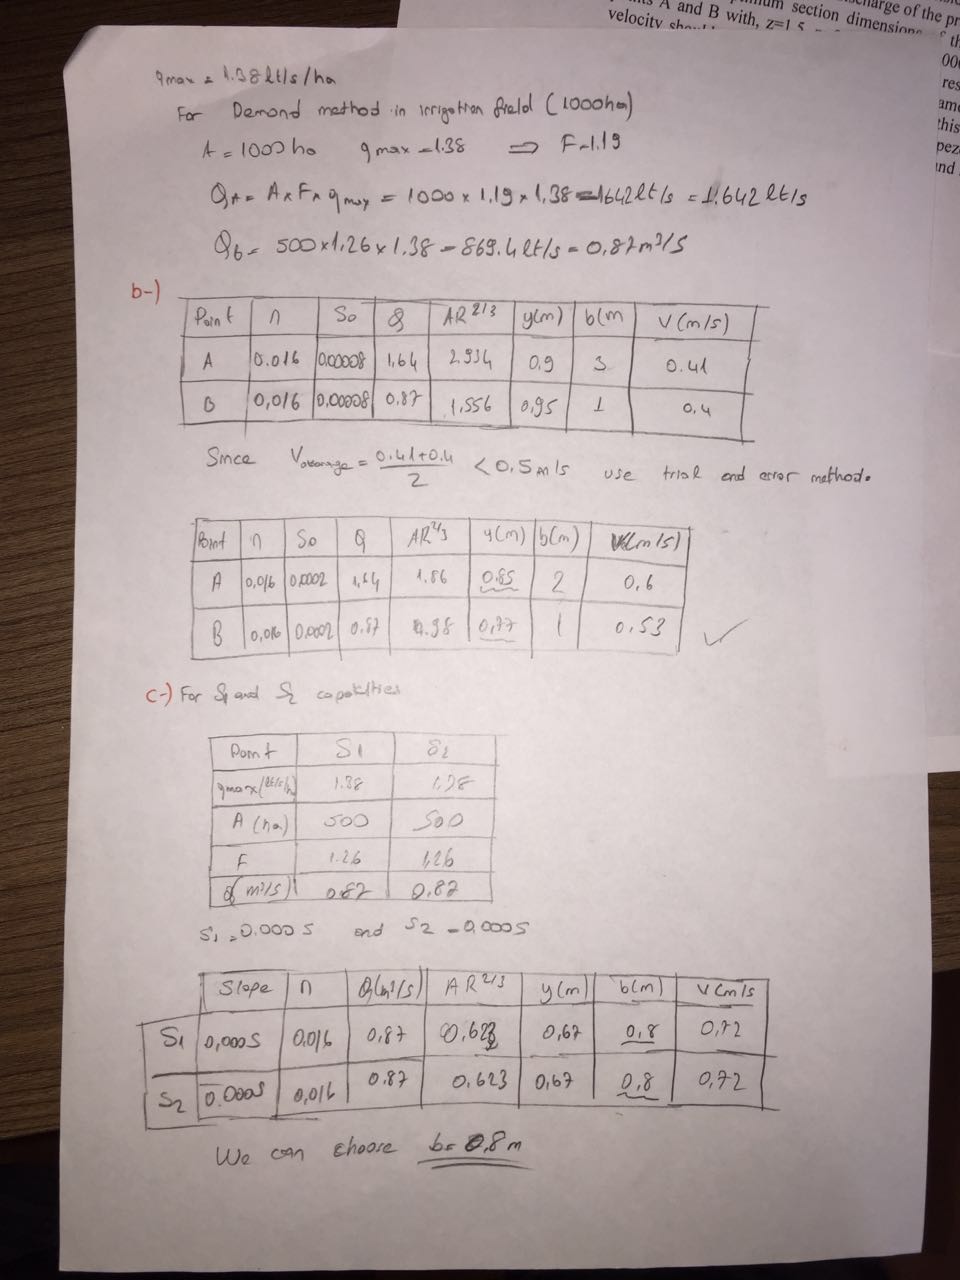 charge of the pr
nts A and B with, z=1.5
imum section dimensions
velocity shou
th
000
res
ame
this
pez
and
qmax = 1.38 lt/s/ha
For Demand method in irrigation field (1000ha)
A = 1000 ha qmax = 1.38 ⇒ F=1.19
QA = A x F x qmax = 1000 x 1.19 x 1,38 = 1642 lt/s = 1.642 lt/s
Qb = 500 x 1.26 x 1.38 = 869.4 lt/s = 0,87 m³/s
b-)
Point n So Q AR 2/3 y(m) b(m V (m/s)
A 0.016 0.00008 1,64 2.934 0.9 3 0.41
B 0,016 0,00008 0.87 1,556 0,95 1 0,4
Since Vaverage = 0.41+0.4 / 2 < 0.5 m/s use trial and error method.
Point n So Q AR 2/3 y(m) b(m) V(m/s)
A 0,016 0.0002 1,64 1.86 0.85 2 0,6
B 0,016 0.0002 0.87 0.98 0,77 1 0.53 ✓
c-) For S1 and S2 capacities
Point S1 S2
qmax (lt/s/h) 1.38 1,38
A (ha) 500 500
F 1.26 1,26
Q (m³/s) 0.87 0.87
S1 = 0.0005 and S2 = 0.0005
Slope n Q(m³/s) AR 2/3 y(m) b(m) V(m/s
S1 0,0005 0.016 0,87 0,623 0,67 0,8 0,72
S2 0.0005 0,016 0.87 0.623 0,67 0,8 0,72
We can choose b= 0,8 m